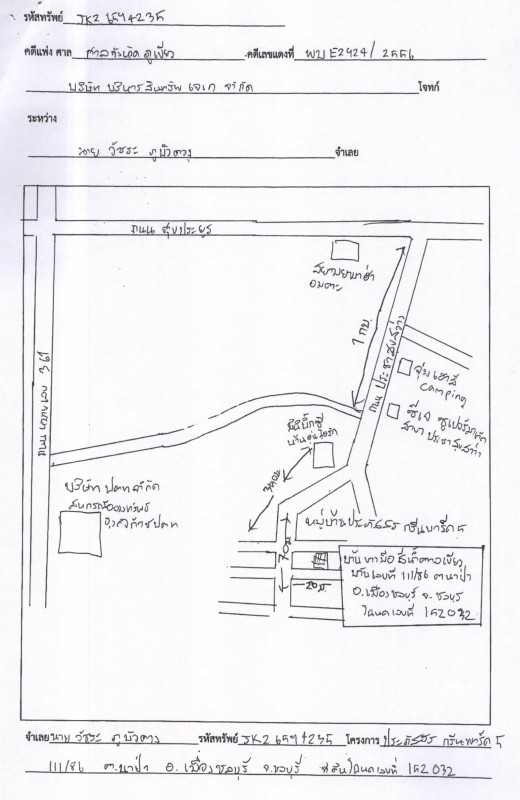 รหัสทรัพย์ JK2 6594235
คดีแพ่ง ศาล ศาลจังหวัด ภูเขียว คดีเลขแดงที่ ผบ E2424/2556
บริษัท บริหารสินทรัพย์ เจเค จำกัด โจทก์
ระหว่าง
นาย วัชระ ภูบัวดวง จำเลย
ถนน สุขประยูร
สยามยามาฮ่า
อมตะ
1 กม.
ถนน ประชาสุขสว่าง
ถนน ทางหลวง 361
camping
ซีเจ ซูเปอร์มาร์เก็ต
สาขา ประชาสุขสว่าง
มินิบิ๊กซี
บริษัท ปตท จำกัด
สหกรณ์ออมทรัพย์
หมู่บ้านประภัสสร กรีนพาร์ค 5
70ม
20ม.
บ้านทางมือสีน้ำตาลเขียว
บ้านเลขที่ 111/86 ต.นาป่า
อ.เมืองชลบุรี จ.ชลบุรี
โฉนดเลขที่ 152032
จำเลย นาย วัชระ ภูบัวดวง รหัสทรัพย์ JK2 6594235 โครงการ ประภัสสร กรีนพาร์ค 5
111/86 ต.นาป่า อ.เมืองชลบุรี จ.ชลบุรี ที่ดินโฉนดเลขที่ 152032